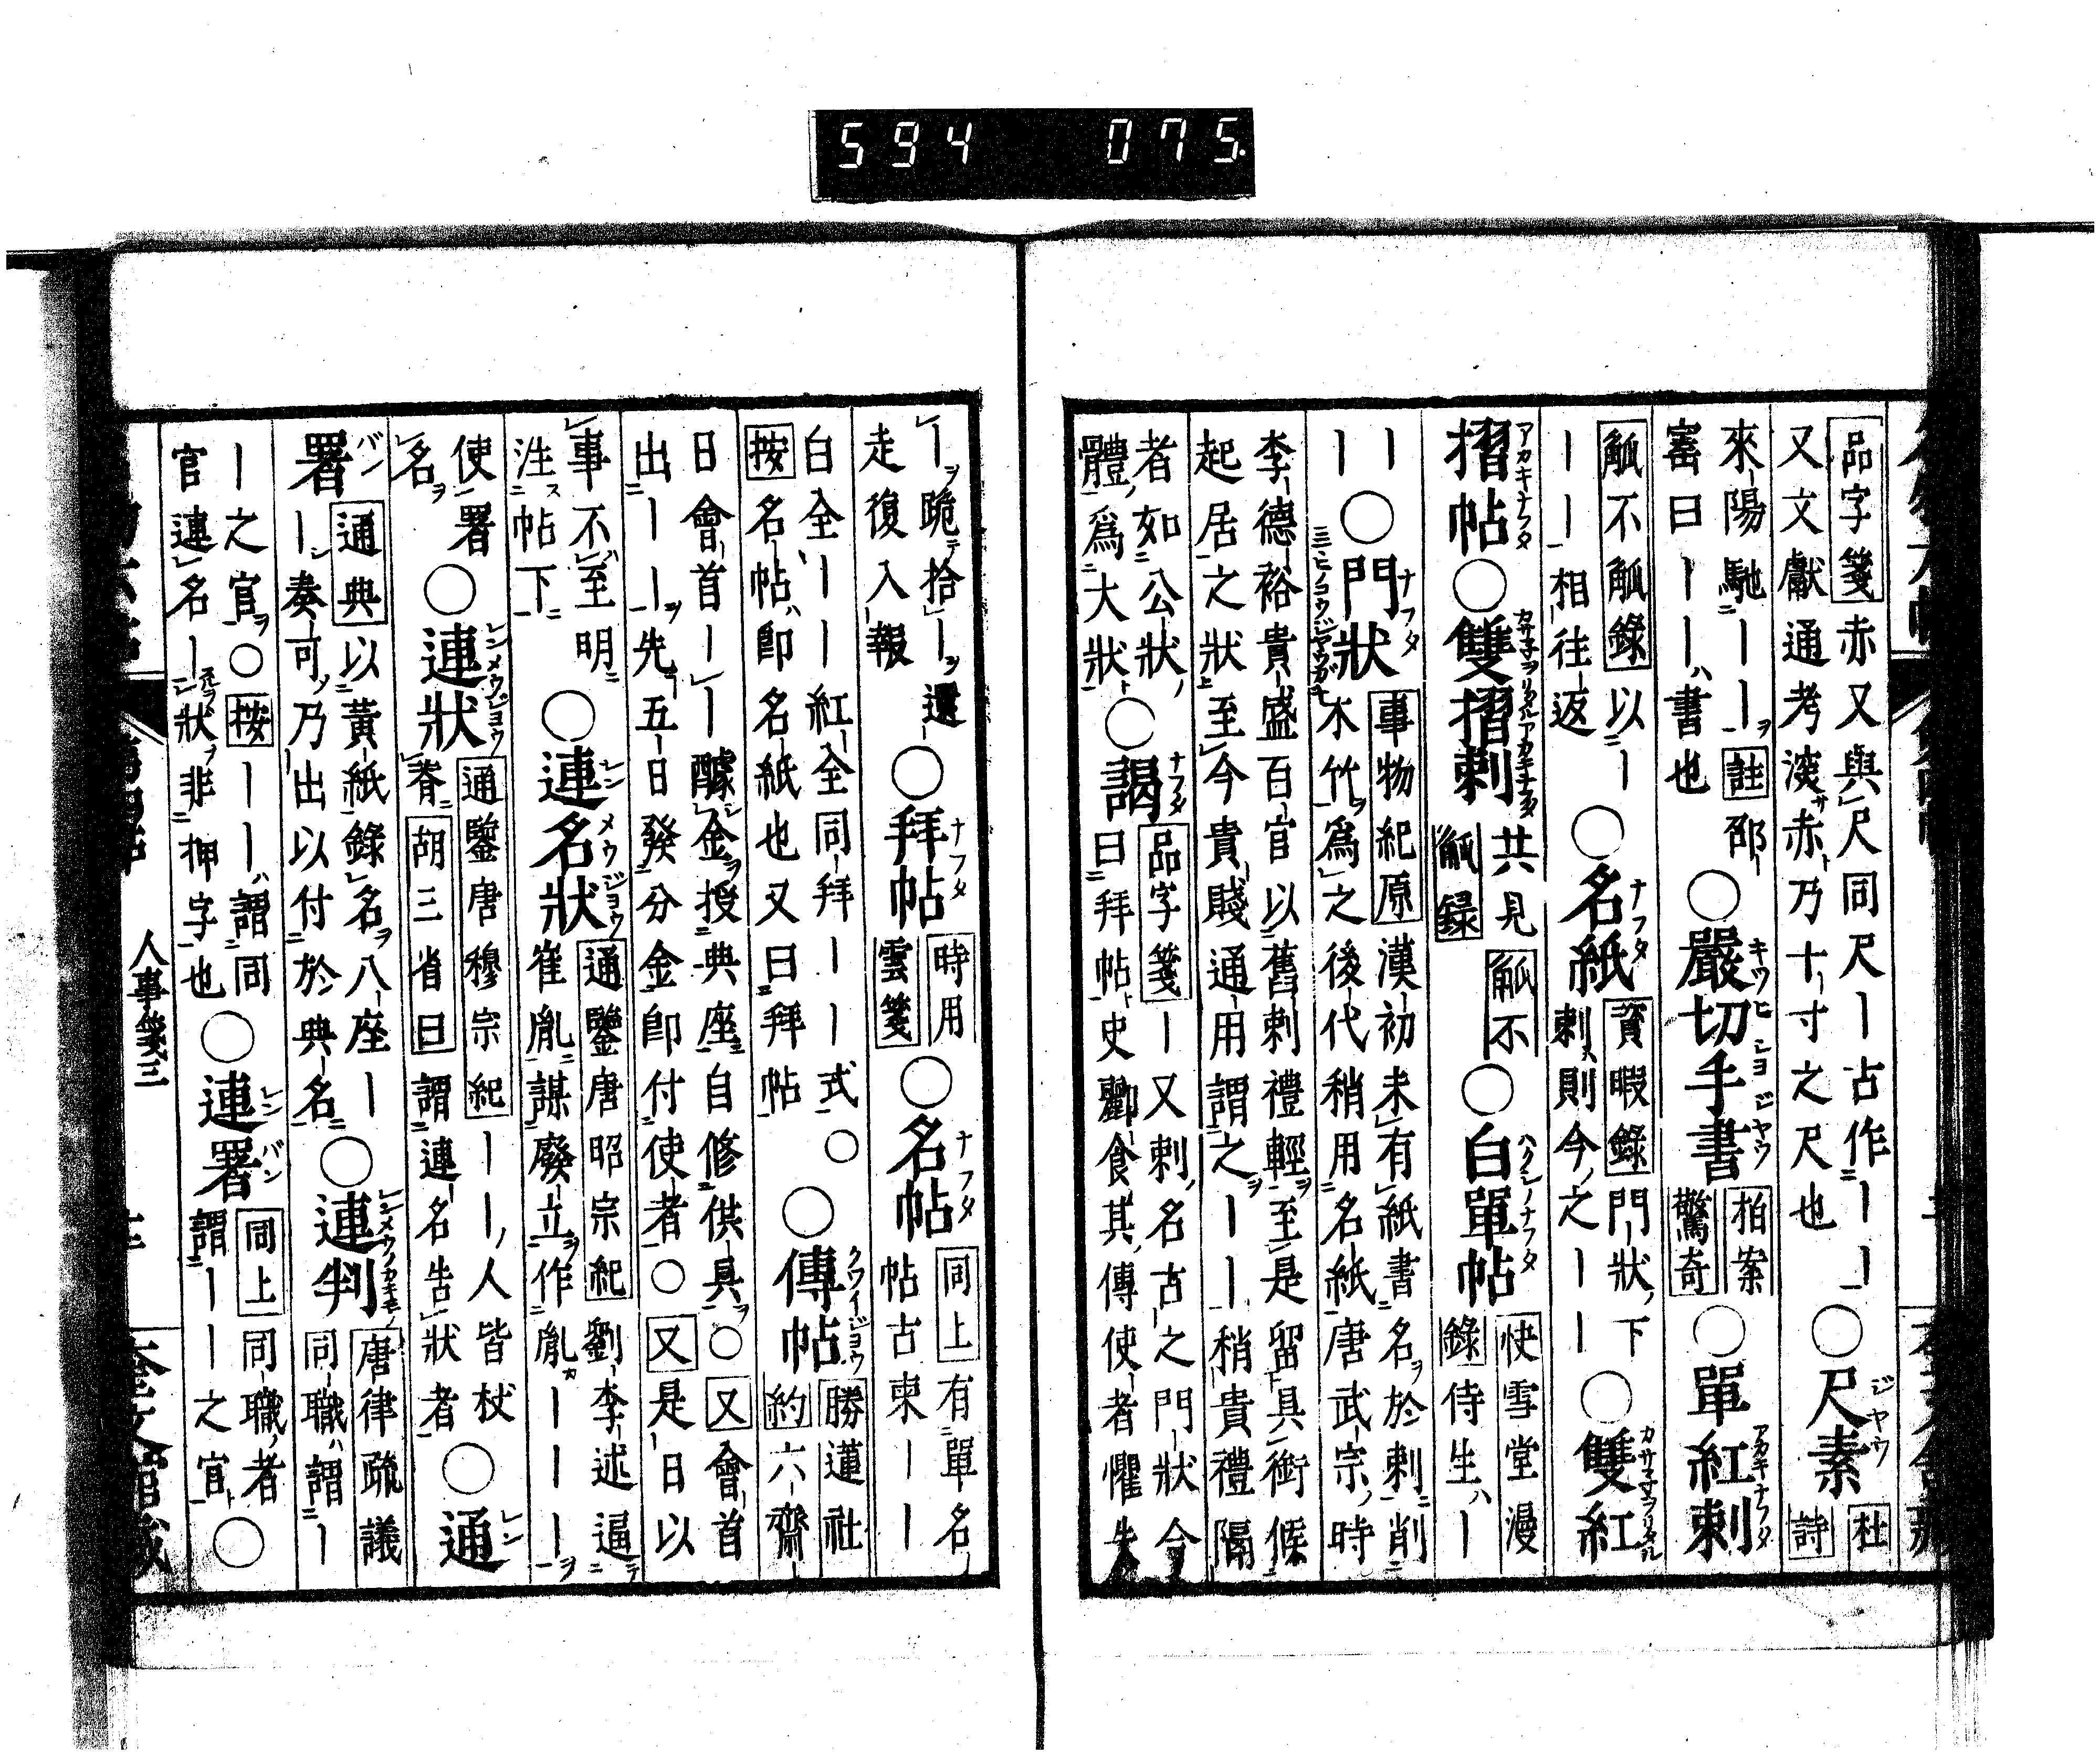 594 075.
品字箋 赤又與尺同尺ー古作ーー
又文獻通考淡赤乃十寸之尺也 ○尺素 杜詩
來陽馳ーー 註 邵
審曰ーー書也 ○嚴切手書 拍案驚奇 ○單紅刺
觚不觚錄 以ー
ーー相往返 ○名紙 資暇錄 門狀下
刺則今之ーー ○雙紅
摺帖 ○雙摺刺 共見觚不觚錄 ○白單帖 快雪堂漫錄 侍生ー
ー ○門狀 事物紀原 漢初未有紙書名於刺削
木竹爲之後代稍用名紙唐武宗時
李德裕貴盛百官以舊刺禮輕至是留具銜候
起居之狀至今貴賤通用謂之ーー稍貴禮隔
者如公狀
體爲大狀 ○謁 品字箋 ー又刺名古之門狀今
曰拜帖史酈食其傳使者懼失
ー跪拾ー還
走復入報 ○拜帖 時用雲箋 ○名帖 同上 有單名
帖古柬ーー
白全ーー紅全同拜ーー式 ○
按 名帖卽名紙也又曰拜帖 ○傳帖 勝蓮社約 六齋
日會首ーー醵金授典座自修供具○又會首
出ーー先五日發分金卽付使者○又是日以
事不至明
注帖下 ○連名狀 通鑒唐昭宗紀 劉李述逼
崔胤謀廢立作胤ーーー
使署
名 ○連狀 通鑒唐穆宗紀 ーー人皆杖
脊 胡三省曰 謂連名告狀者 ○通
署 通典 以黃紙錄名八座ー
ー奏可乃出以付於典名 ○連判 唐律疏議
同職謂ー
ー之官○按ーー謂同
官連名ー狀非押字也 ○連署 同上 同職者
謂ーー之官 ○
人事箋三